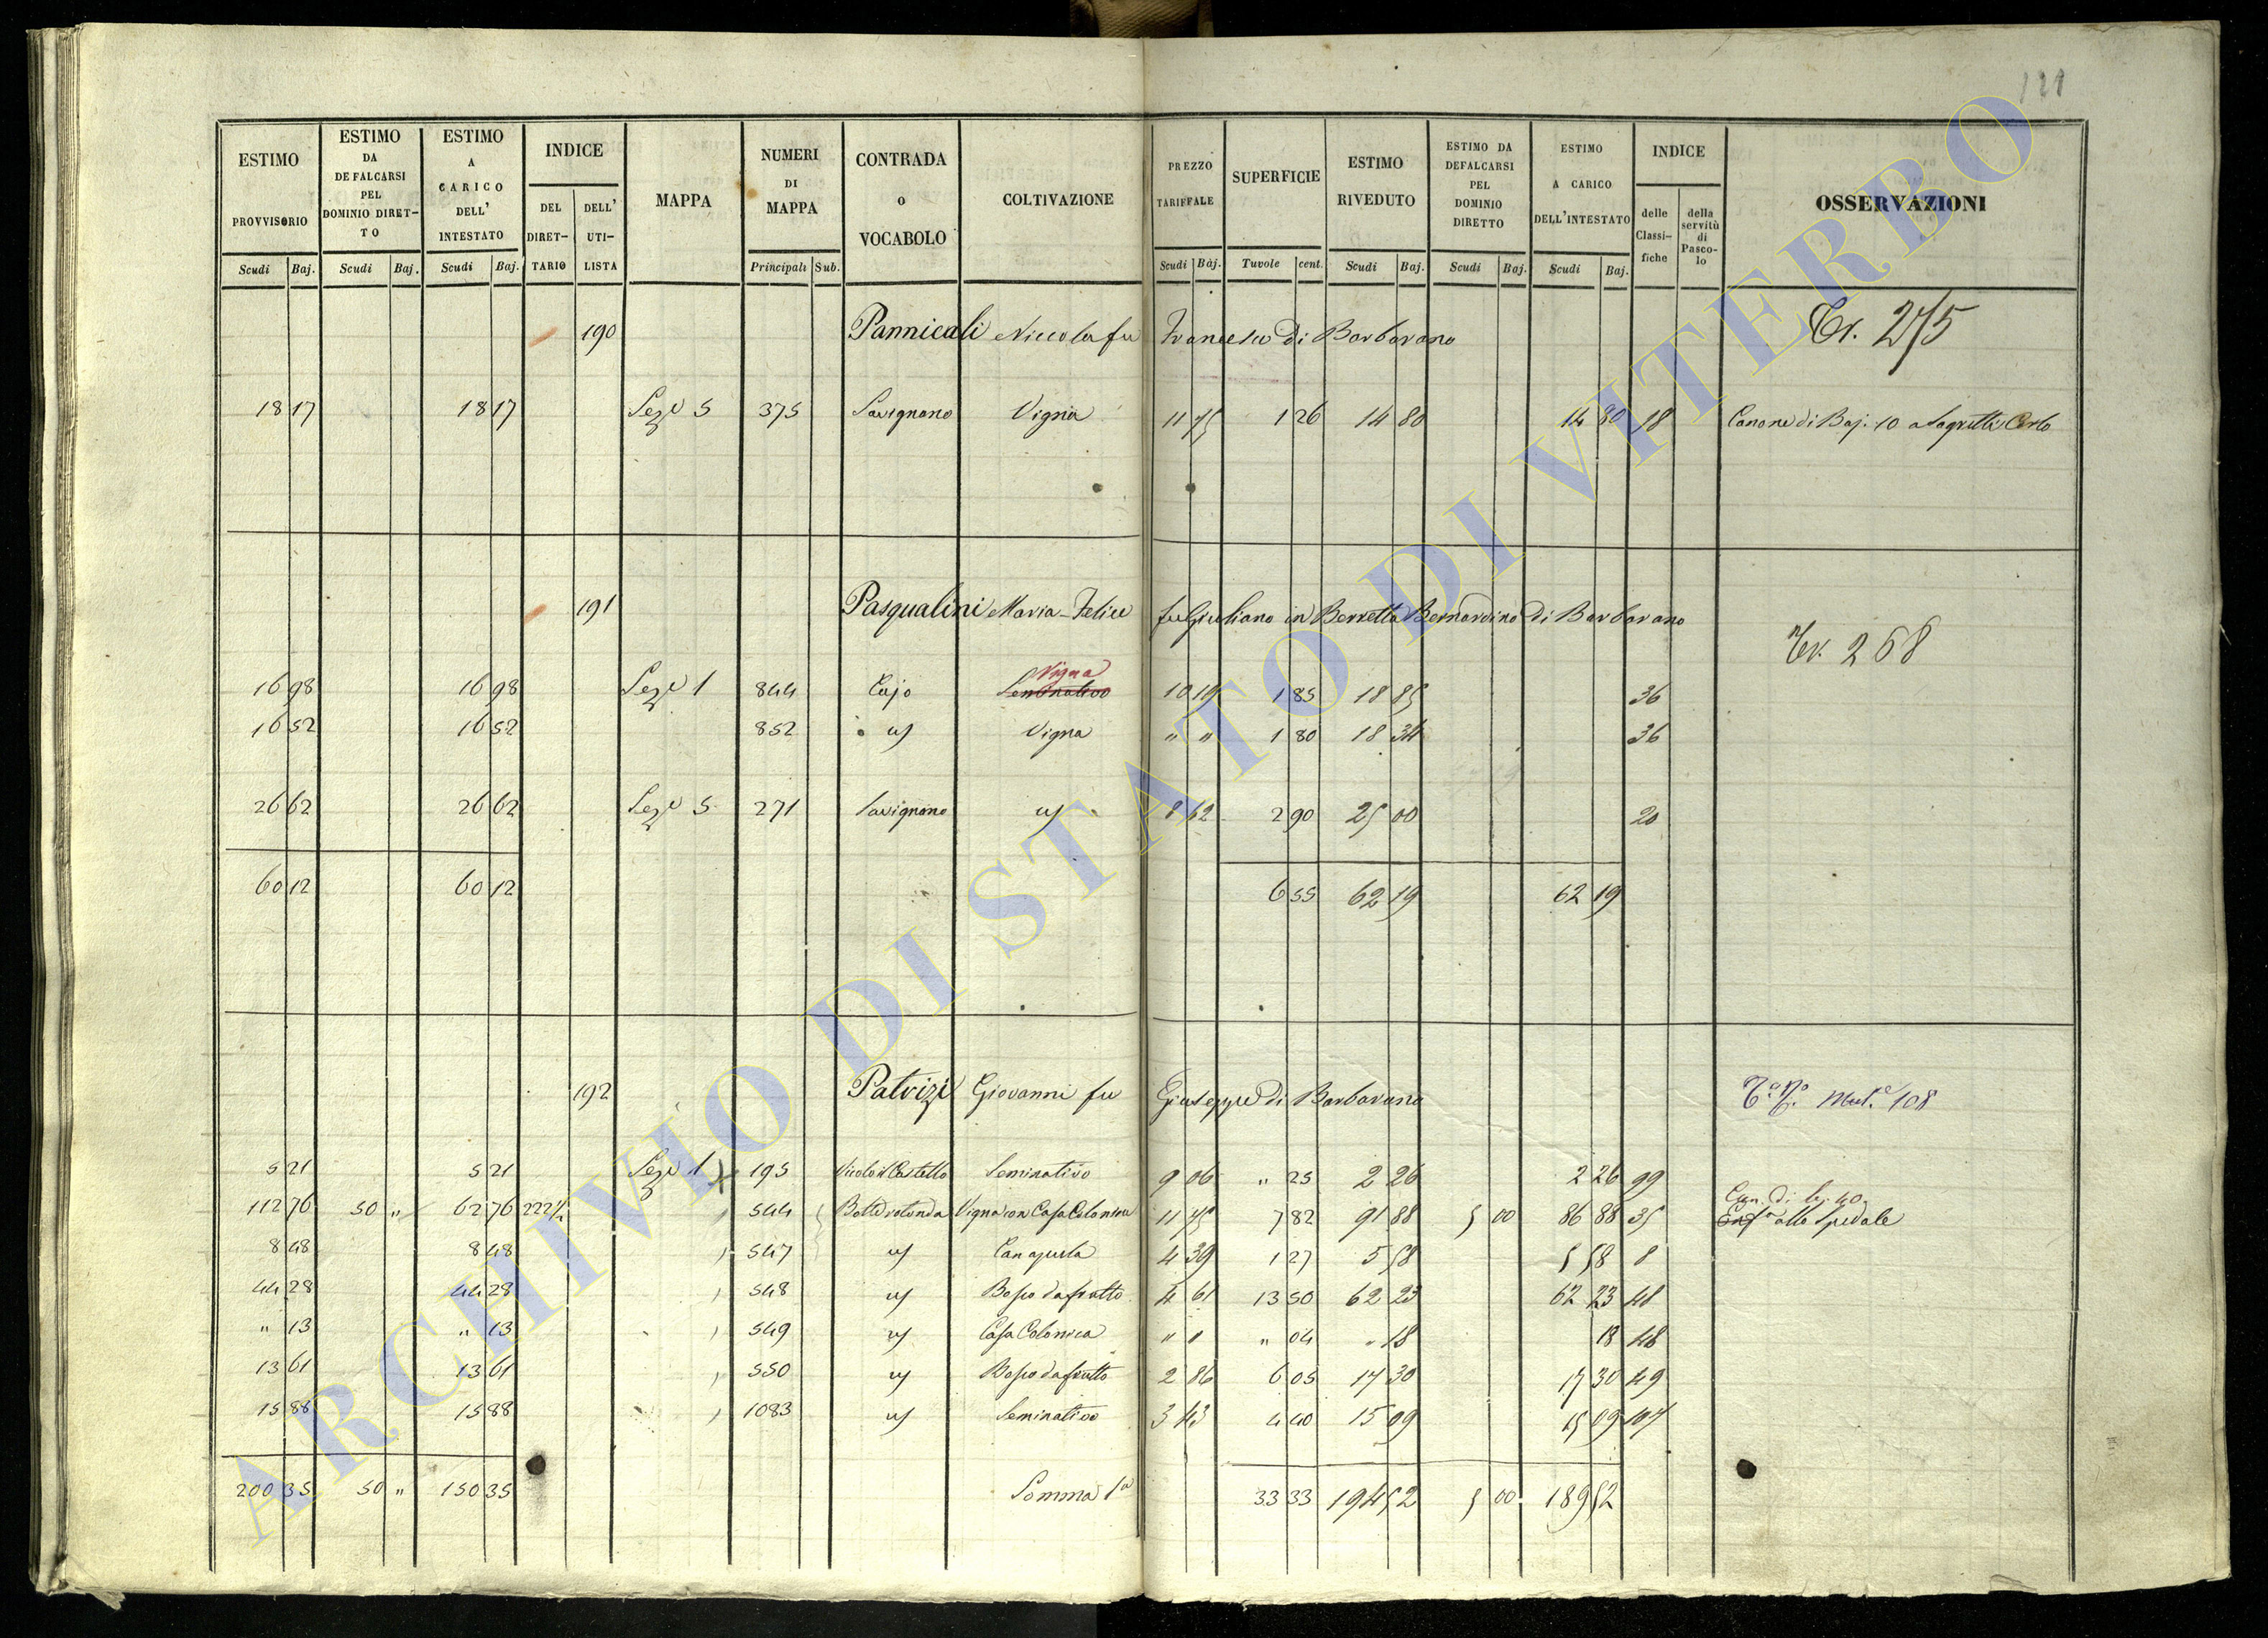 121
ESTIMO PROVVISORIO Scudi Baj.
ESTIMO DA DEFALCARSI PEL DOMINIO DIRET-TO Scudi Baj.
ESTIMO A CARICO DELL' INTESTATO Scudi Baj.
INDICE DEL DIRET-TARIO DELL' UTI-LISTA
MAPPA
NUMERI DI MAPPA Principali Sub.
CONTRADA o VOCABOLO
COLTIVAZIONE
PREZZO TARIFFALE Scudi Baj.
SUPERFICIE Tavole cent.
ESTIMO RIVEDUTO Scudi Baj.
ESTIMO DA DEFALCARSI PEL DOMINIO DIRETTO Scudi Baj.
ESTIMO A CARICO DELL'INTESTATO Scudi Baj.
INDICE delle Classi-fiche della servitù di Pasco-lo
OSSERVAZIONI
190 Pannicali Niccola fu Francesco Di Barbarano Tr. 275
18 17 18 17 Sez.e 5 375 Savignano Vigna 11 75 1 26 14 80 14 80 18 Canone di Baj. 10 a Sagretti Carlo
191 Pasqualini Maria-Felice fu Giuliano in Berretta Bernardino Di Barbarano Tr. 268
Vigna
16 98 16 98 Sez.e 1 844 Cajo Seminativo 10 19 1 85 18 85 36
16 52 16 52 852 " Vigna " " 1 80 18 34 36
26 62 26 62 Sez.e 5 271 Savignano 8 62 2 90 25 00 20
60 12 60 12 6 55 62 19 62 19
192 Patrizi Giovanni fu Giuseppe Di Barbarano Mut.e 108
5 21 5 21 Sez.e 1 195 Vicolo il Castello Seminativo 9 06 " 25 2 26 2 26 99
Can. di bj. 40
112 76 50 " 62 76 222 1/2 544 Botte rotonda Vigna con Casa Colonica 11 75 7 82 91 88 5 00 86 88 35 Enf.a allo Spedale
8 48 8 48 547 Canapula 4 39 1 27 5 58 5 58 8
44 28 44 28 548 Bosco da frutto 4 61 13 50 62 23 62 23 48
" 13 " 13 549 Casa Colonica " " " 04 " 18 18 48
13 61 13 61 550 Bosco da frutto 2 86 6 05 17 30 17 30 49
15 88 15 88 1083 Seminativo 3 43 4 40 15 09 15 09 107
200 35 50 " 150 35 Somma 1a 33 33 194 52 5 00 189 52
ARCHIVIO DI STATO DI VITERBO